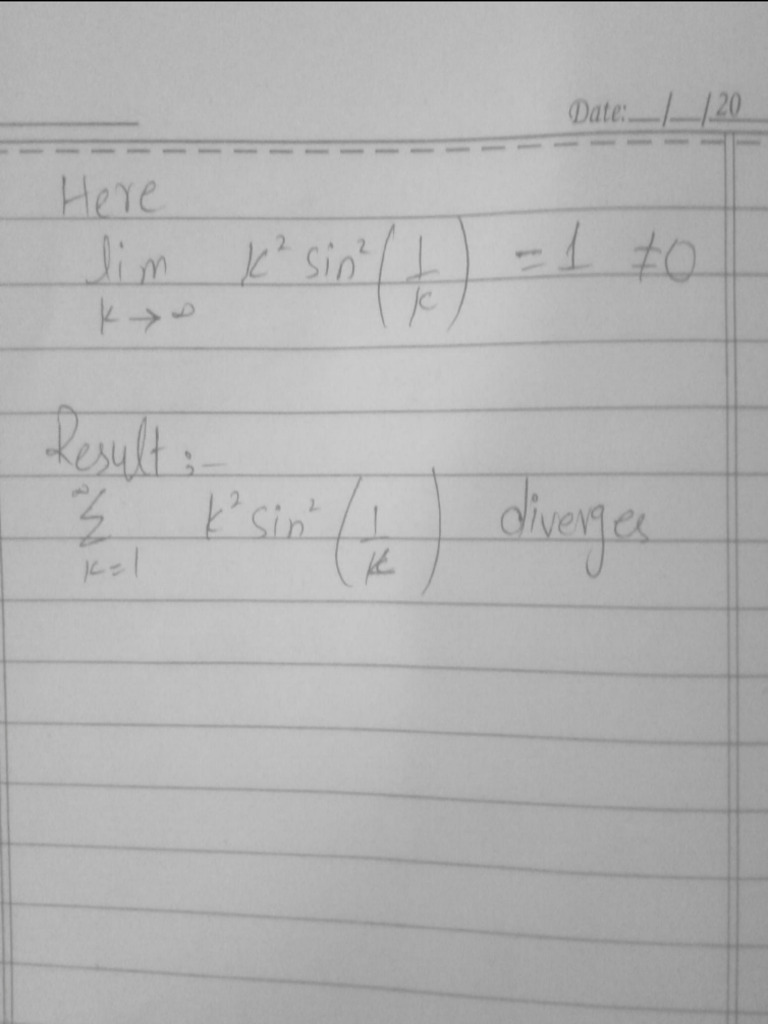 Date: __/__/20
Here
lim k² sin² (1/k) = 1 ≠0
k → ∞
Result :-
∞
Σ k² sin² (1/k) diverges
k=1